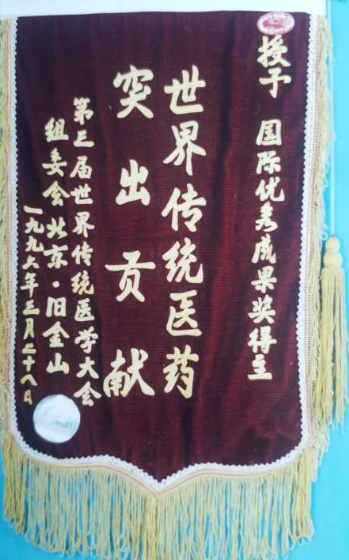 授予 国际优秀成果奖得主
世界传统医药
突出贡献
第三届世界传统医学大会
组委会北京·旧金山
一九九六年三月二十八日